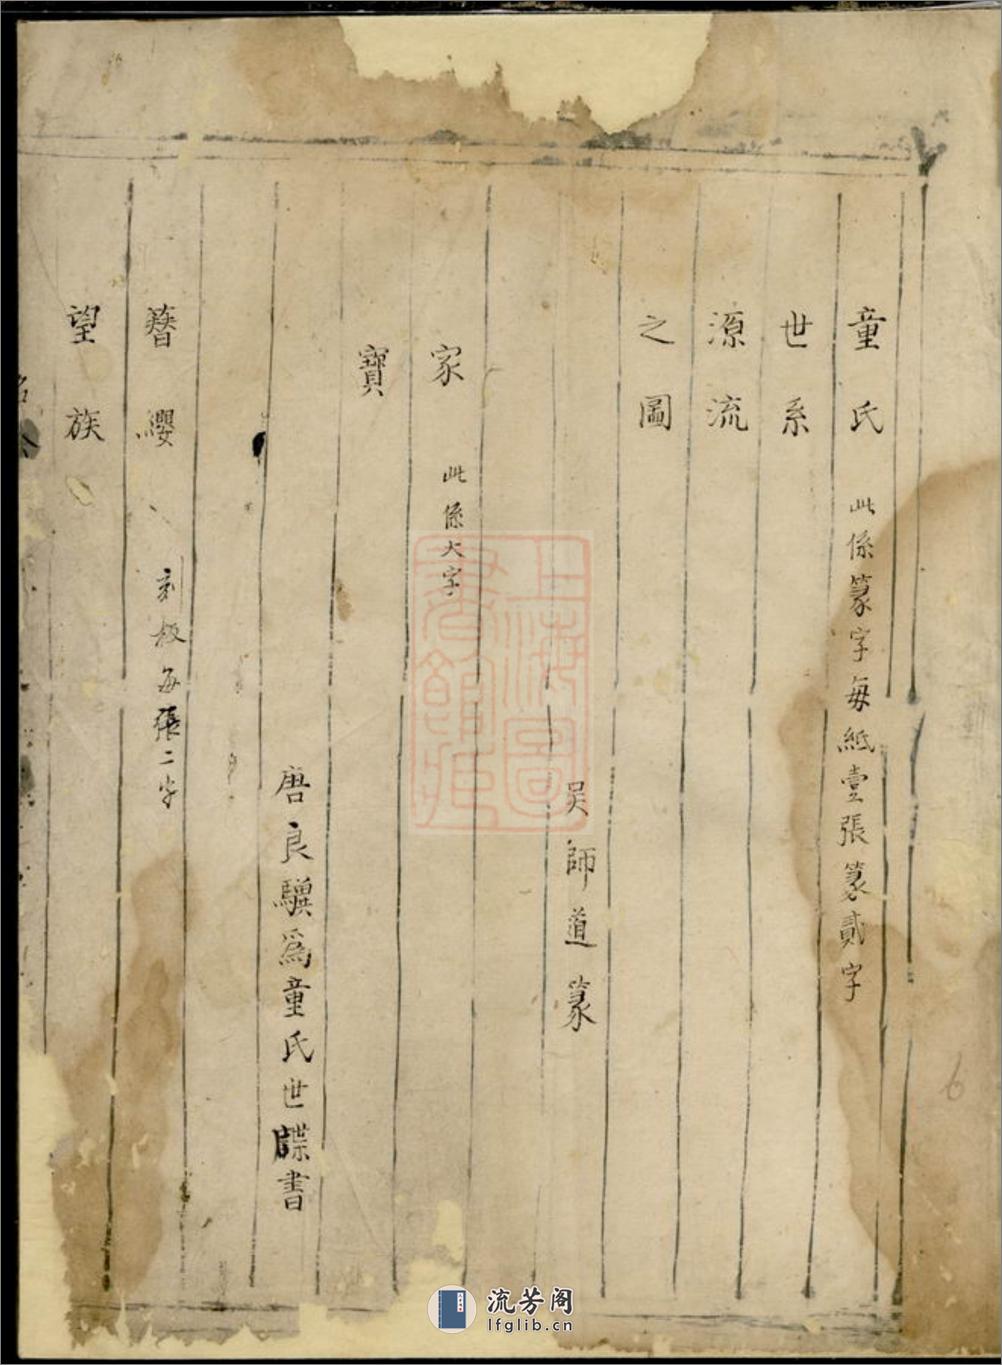 童氏 此係篆字每紙壹張篆貳字
世系
源流
之圖
吳師道篆
家 此係大字
寶
唐良驥爲童氏世牒書
簪纓 刻板每張二字
望族
上海圖書館藏
6
流芳阁
lfglib.cn